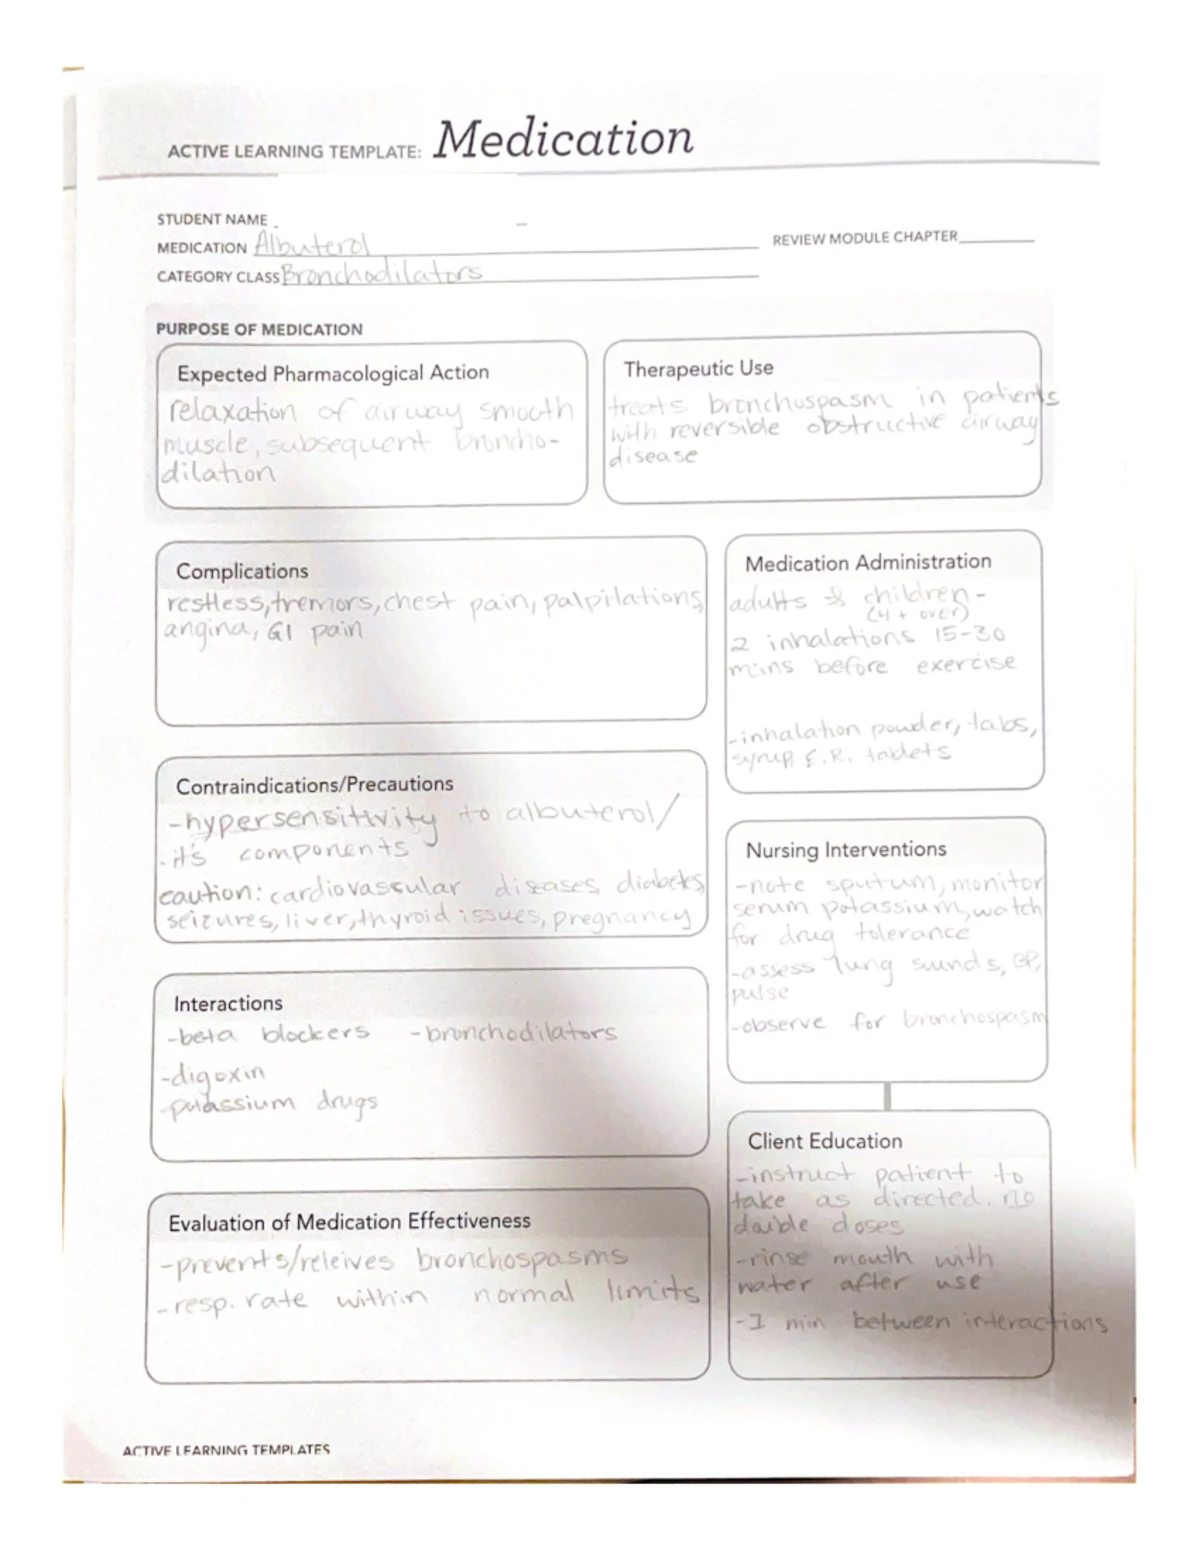 ACTIVE LEARNING TEMPLATE: Medication
STUDENT NAME
MEDICATION Albuterol
REVIEW MODULE CHAPTER
CATEGORY CLASS Bronchodilators
PURPOSE OF MEDICATION
Expected Pharmacological Action
relaxation of airway smooth
muscle, subsequent broncho-
dilation
Therapeutic Use
treats bronchospasm in patients
with reversible obstructive airway
disease
Complications
restless, tremors, chest pain, palpilations,
angina, GI pain
Medication Administration
adults & children-
(4 + over)
2 inhalations 15-30
mins before exercise
-inhalation powder, tabs,
syrup E.R. tablets
Contraindications/Precautions
-hypersensitivity to albuterol/
it's components
caution: cardiovascular diseases, diabetes,
seizures, liver, thyroid issues, pregnancy
Nursing Interventions
-note sputum, monitor
serum potassium, watch
for drug tolerance
-assess lung sounds, BP,
pulse
-observe for bronchospasm
Interactions
-beta blockers -bronchodilators
-digoxin
-potassium drugs
Client Education
-instruct patient to
take as directed. no
double doses
-rinse mouth with
water after use
-1 min between interactions
Evaluation of Medication Effectiveness
-prevents/releives bronchospasms
-resp. rate within normal limits
ACTIVE LEARNING TEMPLATES